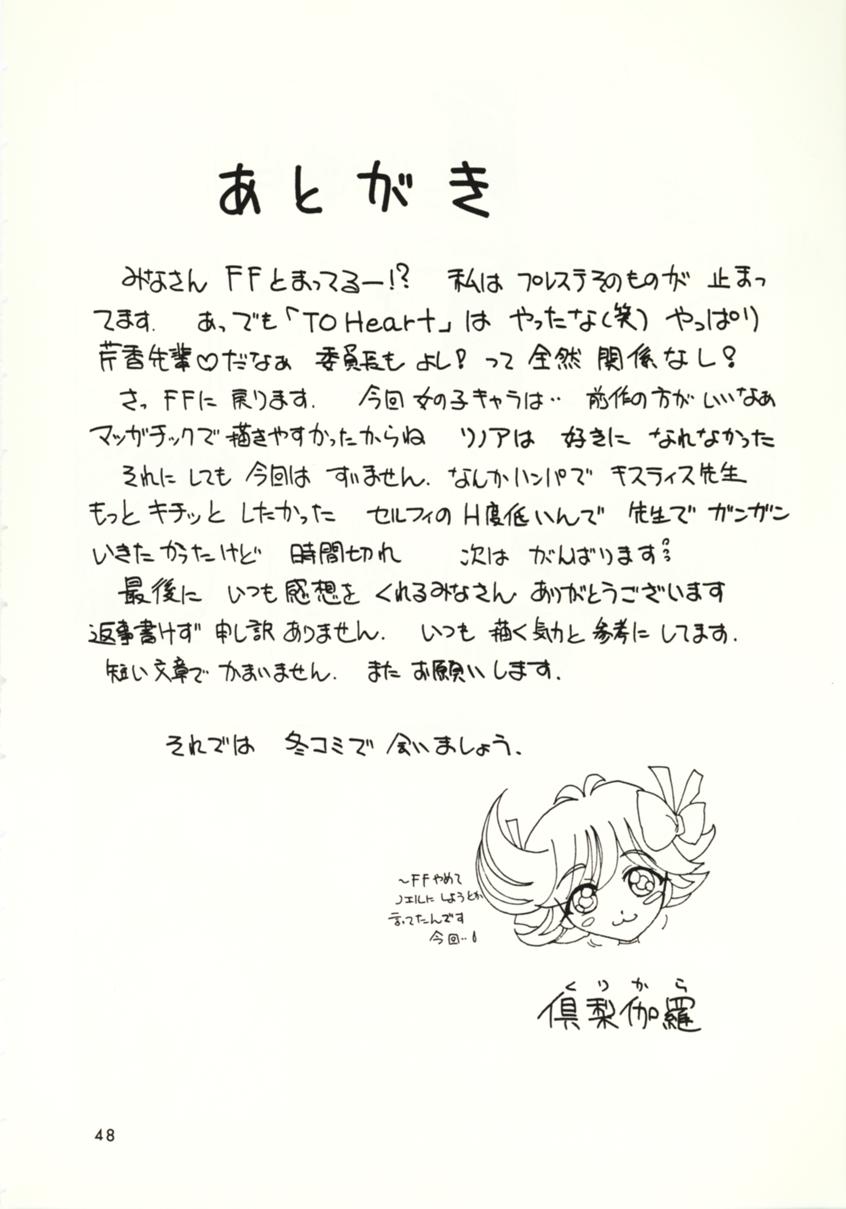 あとがき
みなさん FFとまってるー!? 私は プレステそのものが 止まっ
てます. あっでも「TO Heart」は やったな(笑) やっぱり
芹香先輩♡だなぁ 委員長も よし! って 全然 関係なし!
さっ FFに 戻ります. 今回 女の子キャラは‥ 前作の方が いいなぁ
マンガチックで描きやすかったからね リノアは 好きに なれなかった
それにしても 今回は すいません. なんかハンパで キスティス先生
もっと キチッと したかった セルフィの H度低いんで 先生で ガンガン
いきたかったけど 時間切れ 次は がんばります
最後に いつも 感想を くれるみなさん ありがとうございます
返事書けず 申し訳ありません. いつも 描く気力と 参考に してます.
短い文章で かまいません. また お願いします.
それでは 冬コミで 会いましょう.
〜FFやめて
ノエルに しようとか
言ってたんです
今回‥
くりから
倶梨伽羅
48